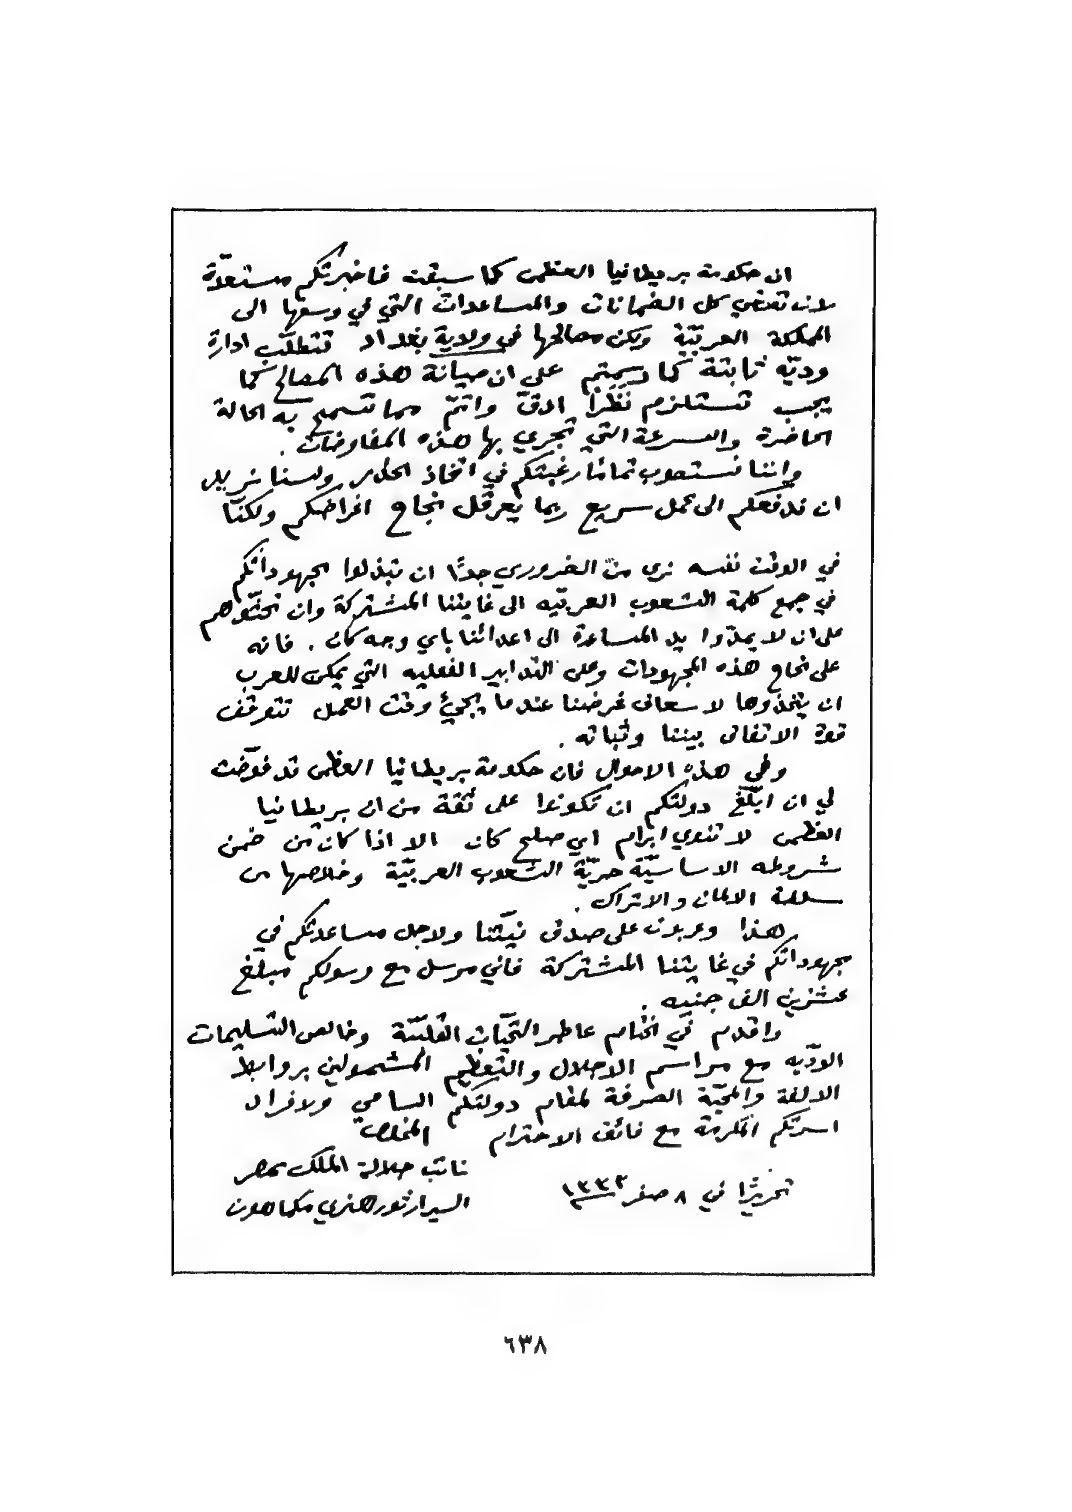 ان حكومة بريطانيا العظمى كما سبقت فاخبرتكم مستعدّة
لان تعطي كل الضمانات والمساعدات التي في وسعها الى
المملكة العربيّة ولكن مصالحها في ولاية بغداد تتطلّب ادارة
وديّه ثابتة كما رسمتم على ان صيانة هذه المصالح كما
يجب تستلزم نظرًا ادقّ واتمّ مما تسمح به الحالة
الحاضرة والسرعة التي تجري بها هذه المفاوضات .
واننا نستصوب تمامًا رغبتكم في اتخاذ الحذر ولسنا نريد
ان ندفعكم الى عمل سريع ربما يعرقل نجاح اغراضكم ولكنّا
في الوقت نفسه نرى منّ الضروري جدًا ان تبذلوا مجهوداتكم
في جمع كلمة الشعوب العربيّه الى غايتنا المشتركة وان تحثّوهم
على ان لا يمدّوا يد المساعدة الى اعدائنا باي وجه كان . فانه
على نجاح هذه المجهودات وعلى التدابير الفعليه التي يمكن للعرب
ان يتخذوها لاسعاف غرضنا عندما يجيءُ وقت العمل تتوقف
قوة الاتفاق بيننا وثباته .
وفي هذهِ الاحوال فان حكومة بريطانيا العظمى قد فوّضت
لي ان ابلّغ دولتكم ان تكونوا على ثقة من ان بريطانيا
العظمى لا تنوي ابرام اي صلح كان الا اذا كان من ضمن
شروطه الاساسيّة حريّة الشعوب العربيّة وخلاصها من
سلطة الالمان والاتراك .
هذا وعربون على صدق نيّتنا ولاجل مساعدتكم في
مجهوداتكم في غايتنا المشتركة فاني مرسل مع رسولكم مبلغ
عشرين الف جنيه .
واقدم في الختام عاطر التحيّات القلبيّة وخالص التسليمات
الودّيه مع مراسم الاجلال والتعظيم المشمولين بروابط
الالفة والمحبّة الصرفة لمقام دولتكم السامي ولافراد
اسرتكم المكرمة مع فائق الاحترام المخلص
نائب جلالة الملك بمصر
تحريرًا في ٨ صفر ١٣٣٤
السير ارثور هنري مكماهون
٦٣٨